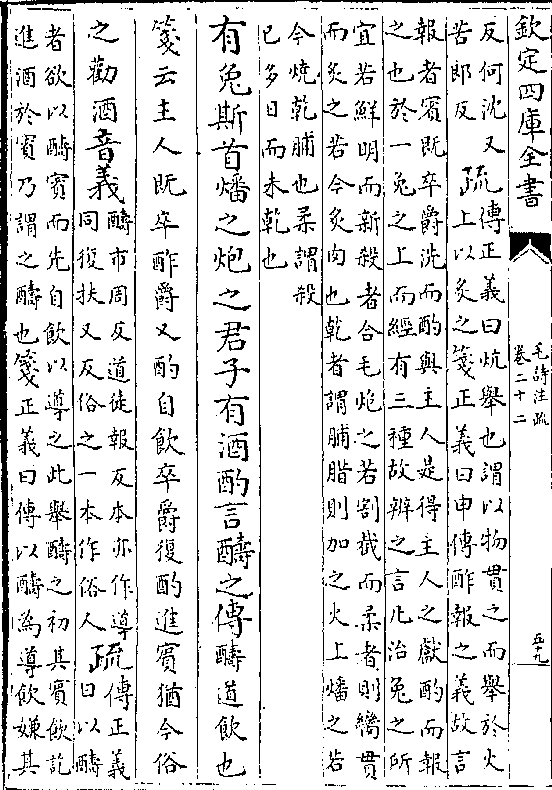 欽定四庫全書
毛詩注疏
卷二十二
五十九
反何沈又
苦郎反
疏
傳正義曰炕舉也謂以物貫之而舉於火
上以炙之箋正義曰申傳酢報之義故言
報者賓既卒爵洗而酌與主人是得主人之獻酌而報
之也於一兔之上而經有三種故辨之言凡治兔之所
宜若鮮明而新殺者合毛炮之若割截而柔者則臠貫
而炙之若今炙肉也乾者謂脯腊則加之火上燔之若
今燒乾脯也柔謂殺
已多日而未乾也
有兔斯首燔之炮之君子有酒酌言醻之傳醻道飲也
箋云主人既卒酢爵又酌自飲卒爵復酌進賓猶今俗
之勸酒音義
醻市周反道徒報反本亦作導
同復扶又反俗之一本作俗人
疏
傳正義
曰以醻
者欲以醻賓而先自飲以導之此舉醻之初其賓飲訖
進酒於賓乃謂之醻也箋正義曰傳以醻為導飲嫌其